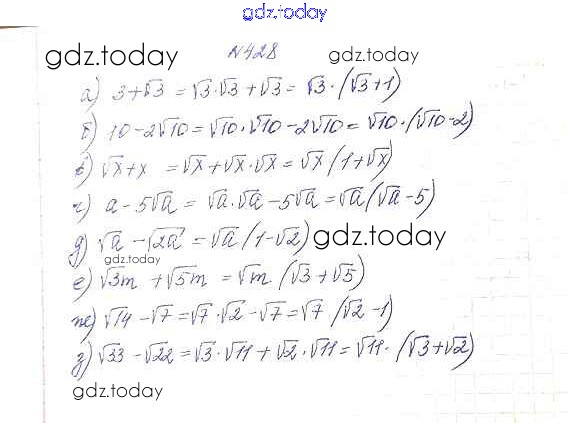 gdz.today
gdz.today №428 gdz.today
а) 3+√3 = √3·√3+√3 = √3·(√3+1)
б) 10-2√10=√10·√10-2√10=√10·(√10-2)
в) √x+x =√x+√x·√x=√x(1+√x)
г) a-5√a = √a·√a-5√a=√a(√a-5)
д) √a-√2a =√a(1-√2) gdz.today
gdz.today
е) √3m+√5m =√m·(√3+√5)
ж) √14-√7=√7·√2-√7=√7(√2-1)
з) √33-√22=√3·√11+√2·√11=√11·(√3+√2)
gdz.today